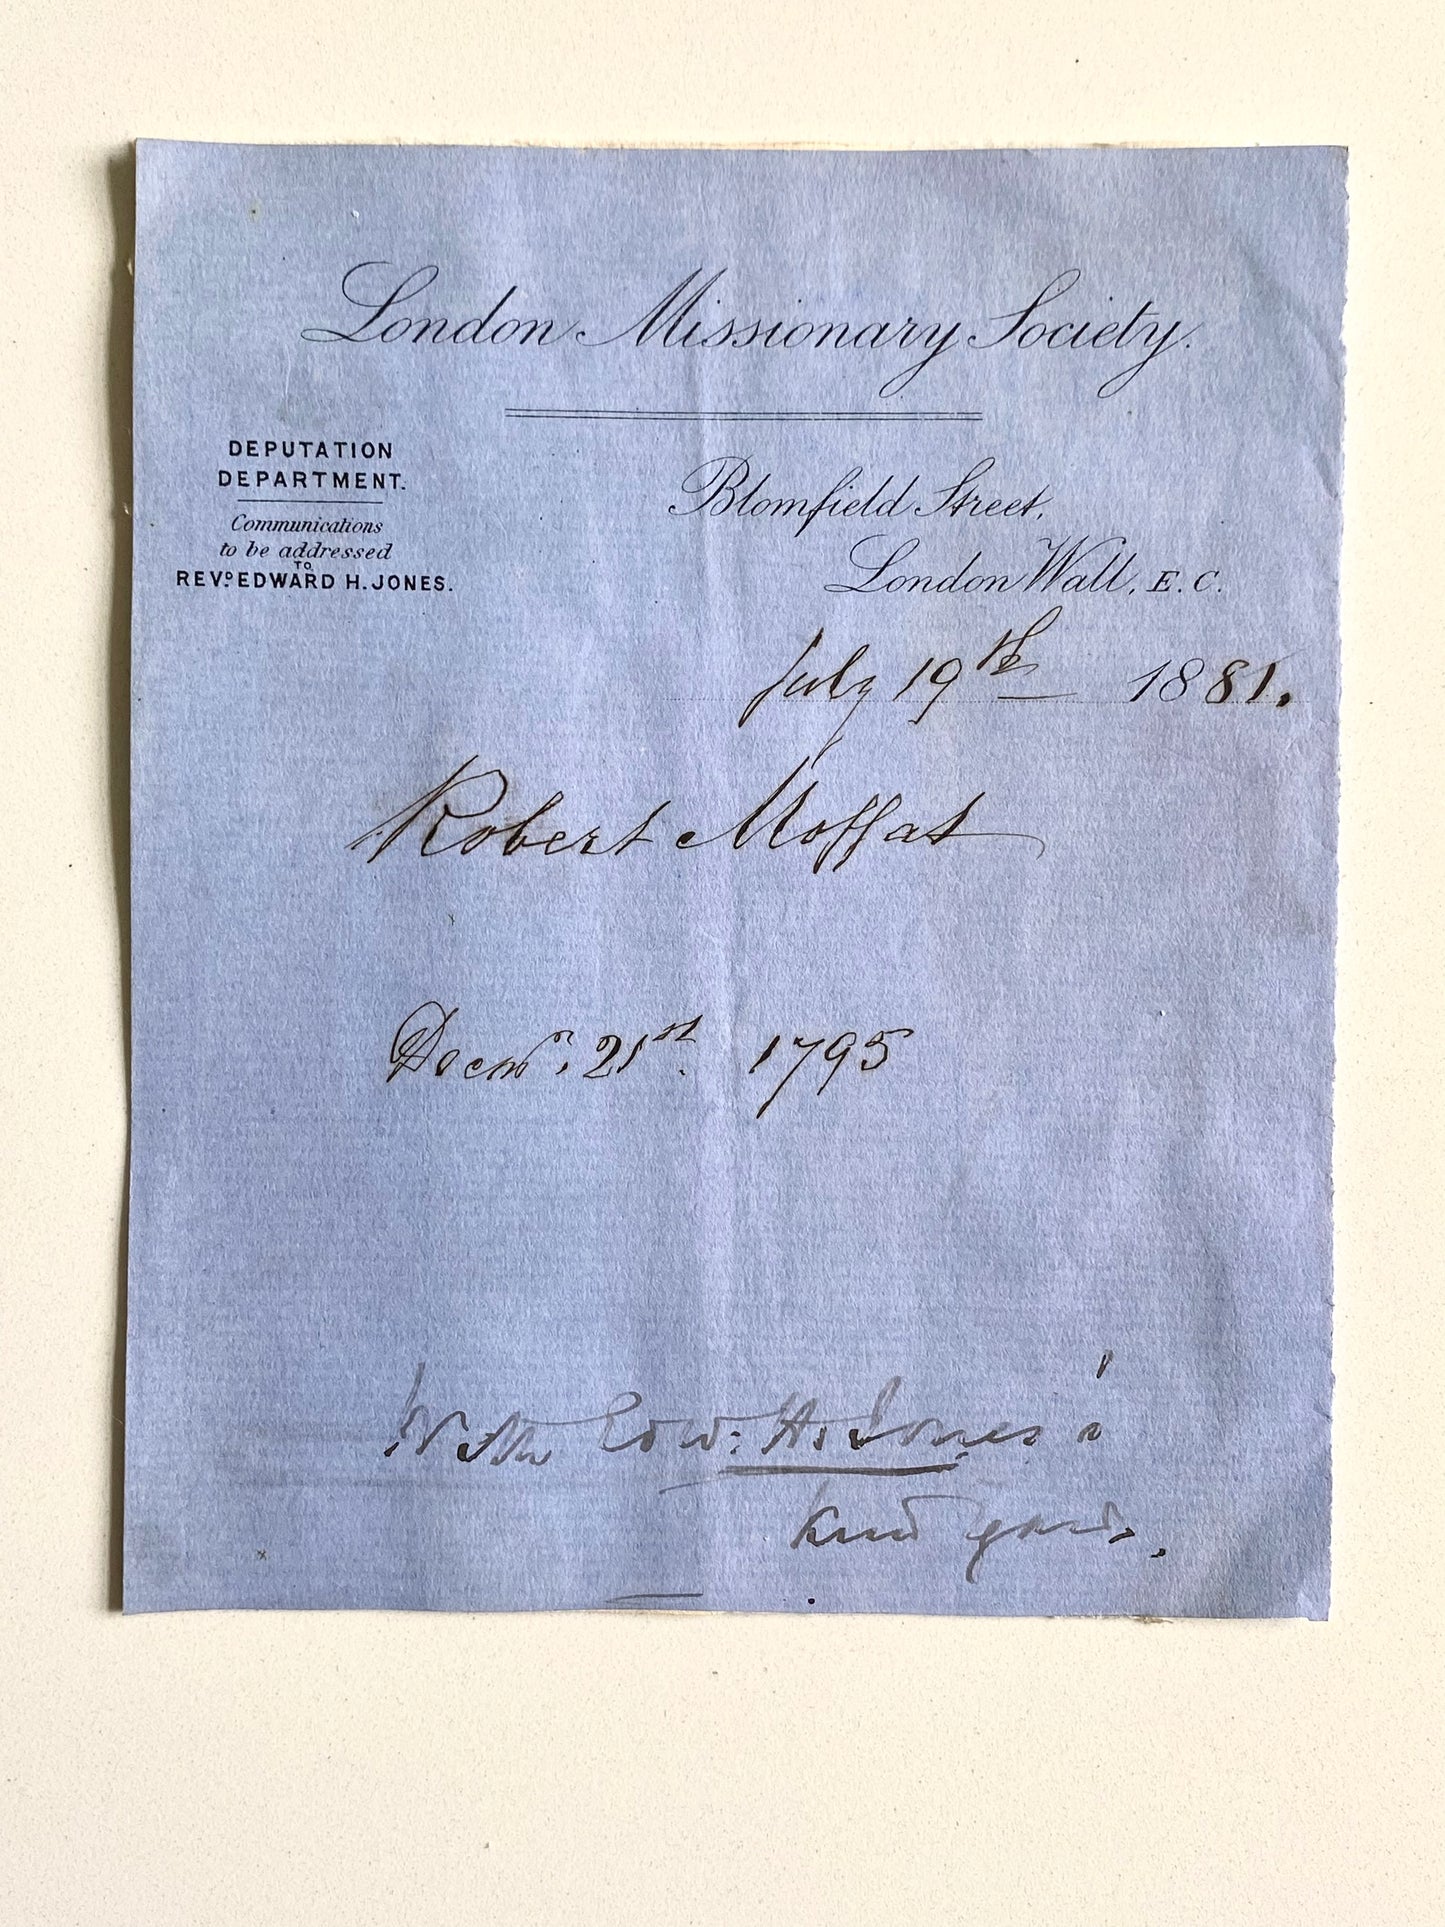 London Missionary Society.
DEPUTATION
DEPARTMENT.
Communications
to be addressed
TO
REVD. EDWARD H. JONES.
Blomfield Street,
London Wall, E.C.
July 19th 1881.
Robert Moffat
Decmr. 21st. 1795
With Edw: H. Jones'
Kind regards.